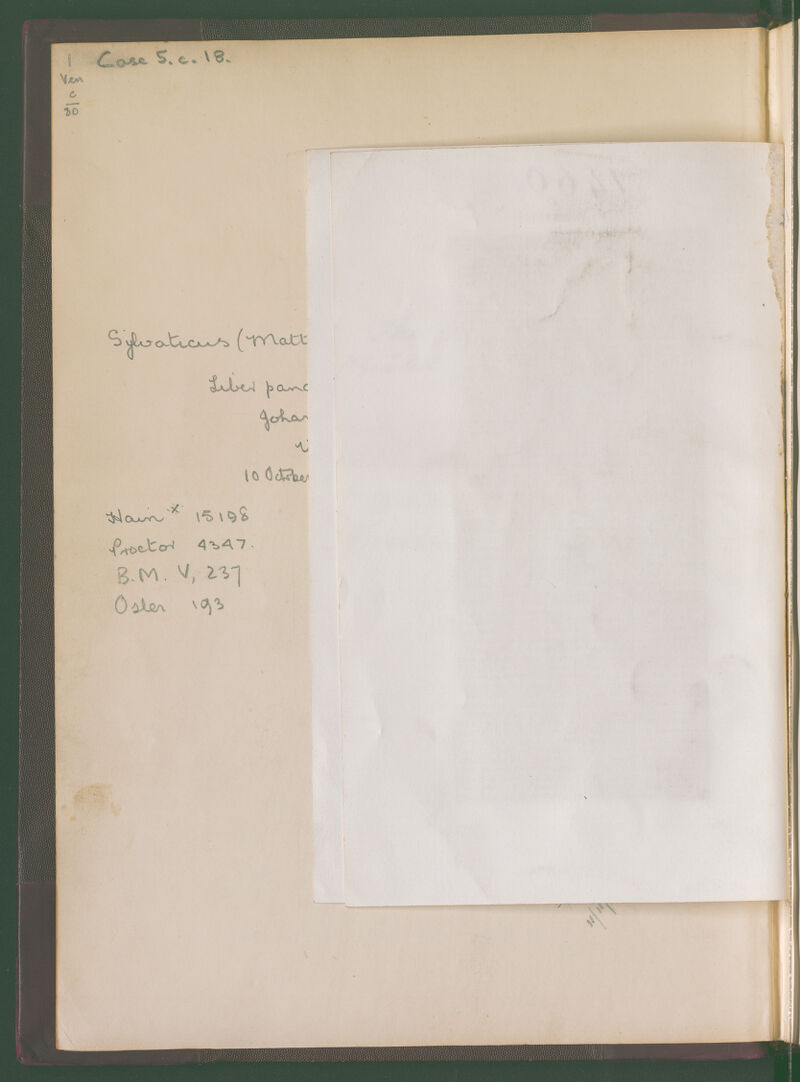 1 Case 5. c. 18.
Ven
c
80
Sylvaticus (Matt
Liber pand
Johan
V
10 October
Hain * 15198
Proctor 4347.
B.M. V, 237
Osler 193